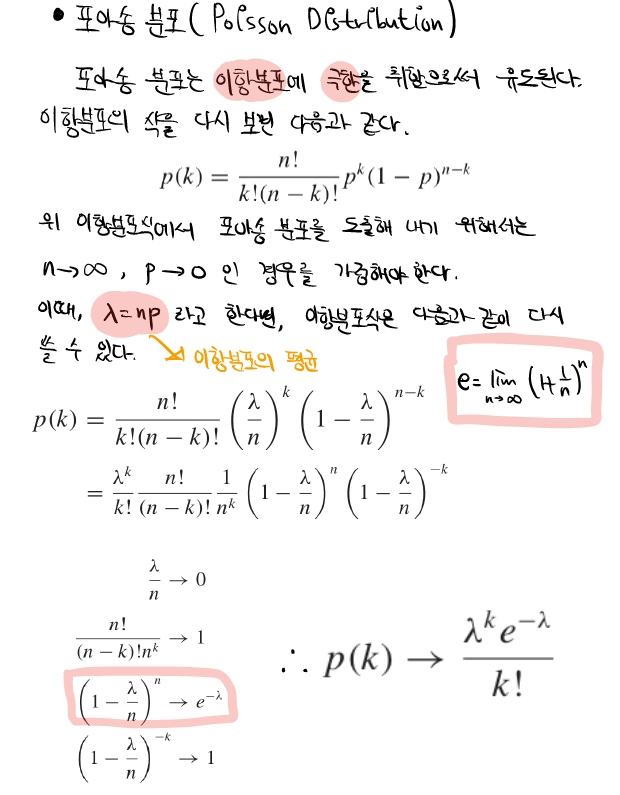 • 포아송 분포(Poisson Distribution)
포아송 분포는 이항분포에 극한을 취함으로써 유도된다.
이항분포의 식을 다시 보면 다음과 같다.
p(k) = n!/(k!(n − k)!) p^k (1 − p)^{n−k}
위 이항분포식에서 포아송 분포를 도출해 내기 위해서는
n→∞, p→0 인 경우를 가정해야 한다.
이때, λ=np 라고 한다면, 이항분포식은 다음과 같이 다시
쓸 수 있다.
이항분포의 평균
e = lim_{n→∞} (1+1/n)^n
p(k) = n!/(k!(n − k)!) (λ/n)^k (1 − λ/n)^{n−k}
= λ^k/k! n!/(n − k)! 1/n^k (1 − λ/n)^n (1 − λ/n)^{−k}
λ/n → 0
n!/((n − k)!n^k) → 1
(1 − λ/n)^n → e^{−λ}
(1 − λ/n)^{−k} → 1
∴ p(k) → λ^k e^{−λ}/k!